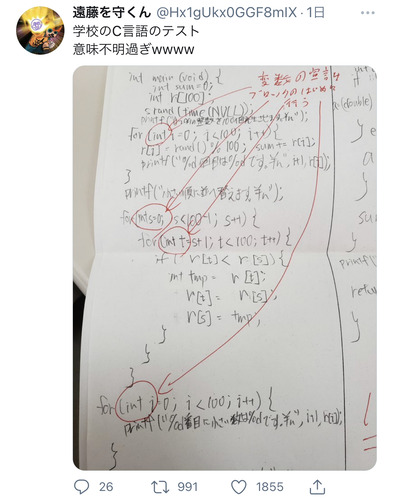 遠藤を守くん @Hx1gUkx0GGF8mIX・1日
学校のC言語のテスト
意味不明過ぎwwww
int main (void) {
int sum=0;
int r[100];
srand(time(NULL));
変数の宣言は
ブロックのはじめに
行う
for (int i=0; i<100; i++) {
r[i] = rand() % 100; sum += r[i];
printf("%d個目は%dです。¥n", i+1, r[i]);
}
for (int s=0; s<100-1; s+1) {
for (int t=s+1; t<100; t++) {
if ( r[t] < r[s]) {
int tmp = r[t];
r[t] = r[s];
r[s] = tmp;
}
}
}
for (int j=0; j<100; j++) {
printf("%d番目に小さい数は%dです。¥n", i+1, r[i]);
}
26 991 1855